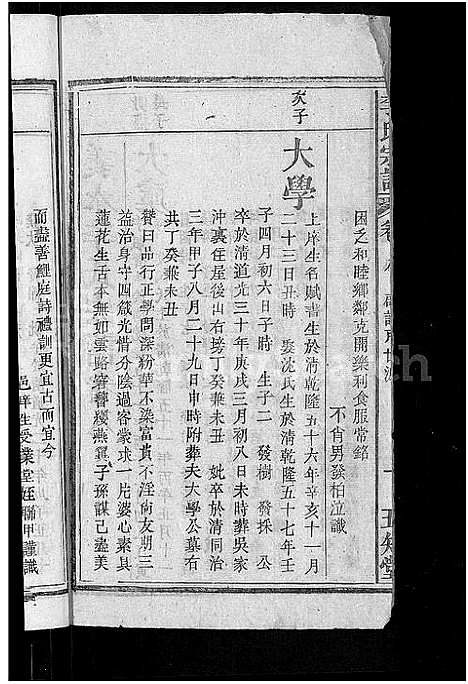 困乏和睦鄉鄰克開樂利食服常銘
不肖男發柏泣識
次子
大學
上庠生名賦書生於清乾隆五十六年辛亥十一月
二十三日丑時 娶沈氏生於清乾隆五十七年壬
子四月初六日子時 生子二 發樹 發採 公
卒於清道光三十年庚戌三月初八日未時葬吳家
沖裏住屋後山右塝丁癸兼未丑 妣卒於清同治
三年甲子八月二十九日申時附葬夫大學公墓右
共丁癸兼未丑
贊曰品行正學問深紛華不染富貴不淫尙友期三
益治身守四箴光惜分陰過客蒙求一片婆心素具
蓮花生舌本無如雲路窘簪纓燕翼子孫謀已盡美
而盡善鯉庭詩禮訓更宜古而宜今
邑庠生受業堂侄聯甲謹識